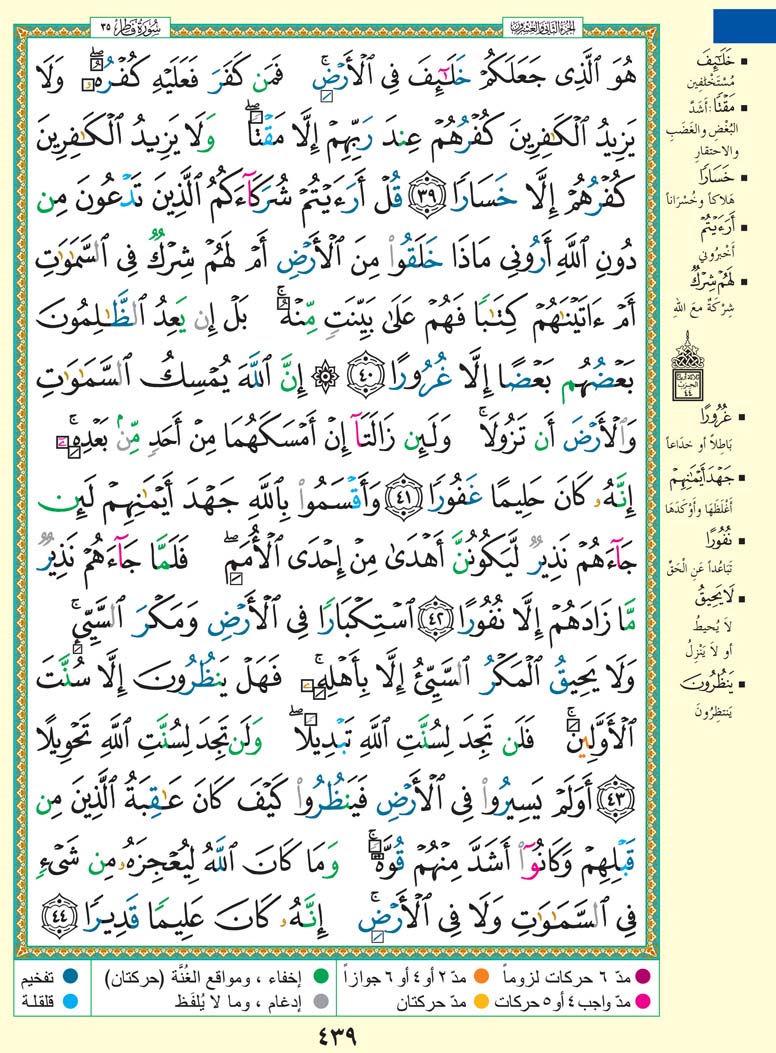 سُورَةُ فَاطِر ٣٥
الجزء الثاني والعشرون
هُوَ الَّذِى جَعَلَكُمْ خَلَٰٓئِفَ فِى الْأَرْضِ ۚ فَمَن كَفَرَ فَعَلَيْهِ كُفْرُهُۥ ۖ وَلَا
يَزِيدُ الْكَٰفِرِينَ كُفْرُهُمْ عِندَ رَبِّهِمْ إِلَّا مَقْتًا ۖ وَلَا يَزِيدُ الْكَٰفِرِينَ
كُفْرُهُمْ إِلَّا خَسَارًا ٣٩ قُلْ أَرَءَيْتُمْ شُرَكَآءَكُمُ الَّذِينَ تَدْعُونَ مِن
دُونِ اللَّهِ أَرُونِى مَاذَا خَلَقُوا۟ مِنَ الْأَرْضِ أَمْ لَهُمْ شِرْكٌ فِى السَّمَٰوَٰتِ
أَمْ ءَاتَيْنَٰهُمْ كِتَٰبًا فَهُمْ عَلَىٰ بَيِّنَتٍ مِّنْهُ ۚ بَلْ إِن يَعِدُ الظَّٰلِمُونَ
بَعْضُهُم بَعْضًا إِلَّا غُرُورًا ٤٠ ۞ إِنَّ اللَّهَ يُمْسِكُ السَّمَٰوَٰتِ
وَالْأَرْضَ أَن تَزُولَا ۚ وَلَئِن زَالَتَآ إِنْ أَمْسَكَهُمَا مِنْ أَحَدٍ مِّنۢ بَعْدِهِۦٓ ۚ
إِنَّهُۥ كَانَ حَلِيمًا غَفُورًا ٤١ وَأَقْسَمُوا۟ بِاللَّهِ جَهْدَ أَيْمَٰنِهِمْ لَئِن
جَآءَهُمْ نَذِيرٌ لَّيَكُونُنَّ أَهْدَىٰ مِنْ إِحْدَى الْأُمَمِ ۖ فَلَمَّا جَآءَهُمْ نَذِيرٌ
مَّا زَادَهُمْ إِلَّا نُفُورًا ٤٢ اسْتِكْبَارًا فِى الْأَرْضِ وَمَكْرَ السَّيِّئِ ۚ
وَلَا يَحِيقُ الْمَكْرُ السَّيِّئُ إِلَّا بِأَهْلِهِۦ ۚ فَهَلْ يَنظُرُونَ إِلَّا سُنَّتَ
الْأَوَّلِينَ ۚ فَلَن تَجِدَ لِسُنَّتِ اللَّهِ تَبْدِيلًا ۖ وَلَن تَجِدَ لِسُنَّتِ اللَّهِ تَحْوِيلًا
٤٣ أَوَلَمْ يَسِيرُوا۟ فِى الْأَرْضِ فَيَنظُرُوا۟ كَيْفَ كَانَ عَٰقِبَةُ الَّذِينَ مِن
قَبْلِهِمْ وَكَانُوٓا۟ أَشَدَّ مِنْهُمْ قُوَّةً ۚ وَمَا كَانَ اللَّهُ لِيُعْجِزَهُۥ مِن شَىْءٍ
فِى السَّمَٰوَٰتِ وَلَا فِى الْأَرْضِ ۚ إِنَّهُۥ كَانَ عَلِيمًا قَدِيرًا ٤٤
خَلَٰٓئِفَ
مُسْتَخْلَفِين
مَقْتًا : أَشَدَّ
البُغْضِ والغَضَبِ
والاحتقارِ
خَسَارًا
هَلاكاً وخُسْرَاناً
أَرَءَيْتُمْ
أَخْبِرُوني
لَهُمْ شِرْكٌ
شِرْكَةٌ معَ اللهِ
الحزب
٤٤
غُرُورًا
بَاطِلاً أو خدَاعاً
جَهْدَ أَيْمَٰنِهِمْ
أَغْلَظَهَا وأَوْكَدَهَا
نُفُورًا
تَبَاعُداً عَنِ الْحَقِّ
لَا يَحِيقُ
لاَ يُحيطُ
أو لاَ يَنْزِلُ
يَنظُرُونَ
يَنتظِرُونَ
مدّ ٦ حركات لزوماً
مدّ ٢ أو ٤ أو ٦ جوازاً
إخفاء ، ومواقع الغُنَّة (حركتان)
تفخيم
مدّ واجب ٤ أو ٥ حركات
مدّ حركتان
إدغام ، وما لا يُلفَظ
قلقلة
٤٣٩